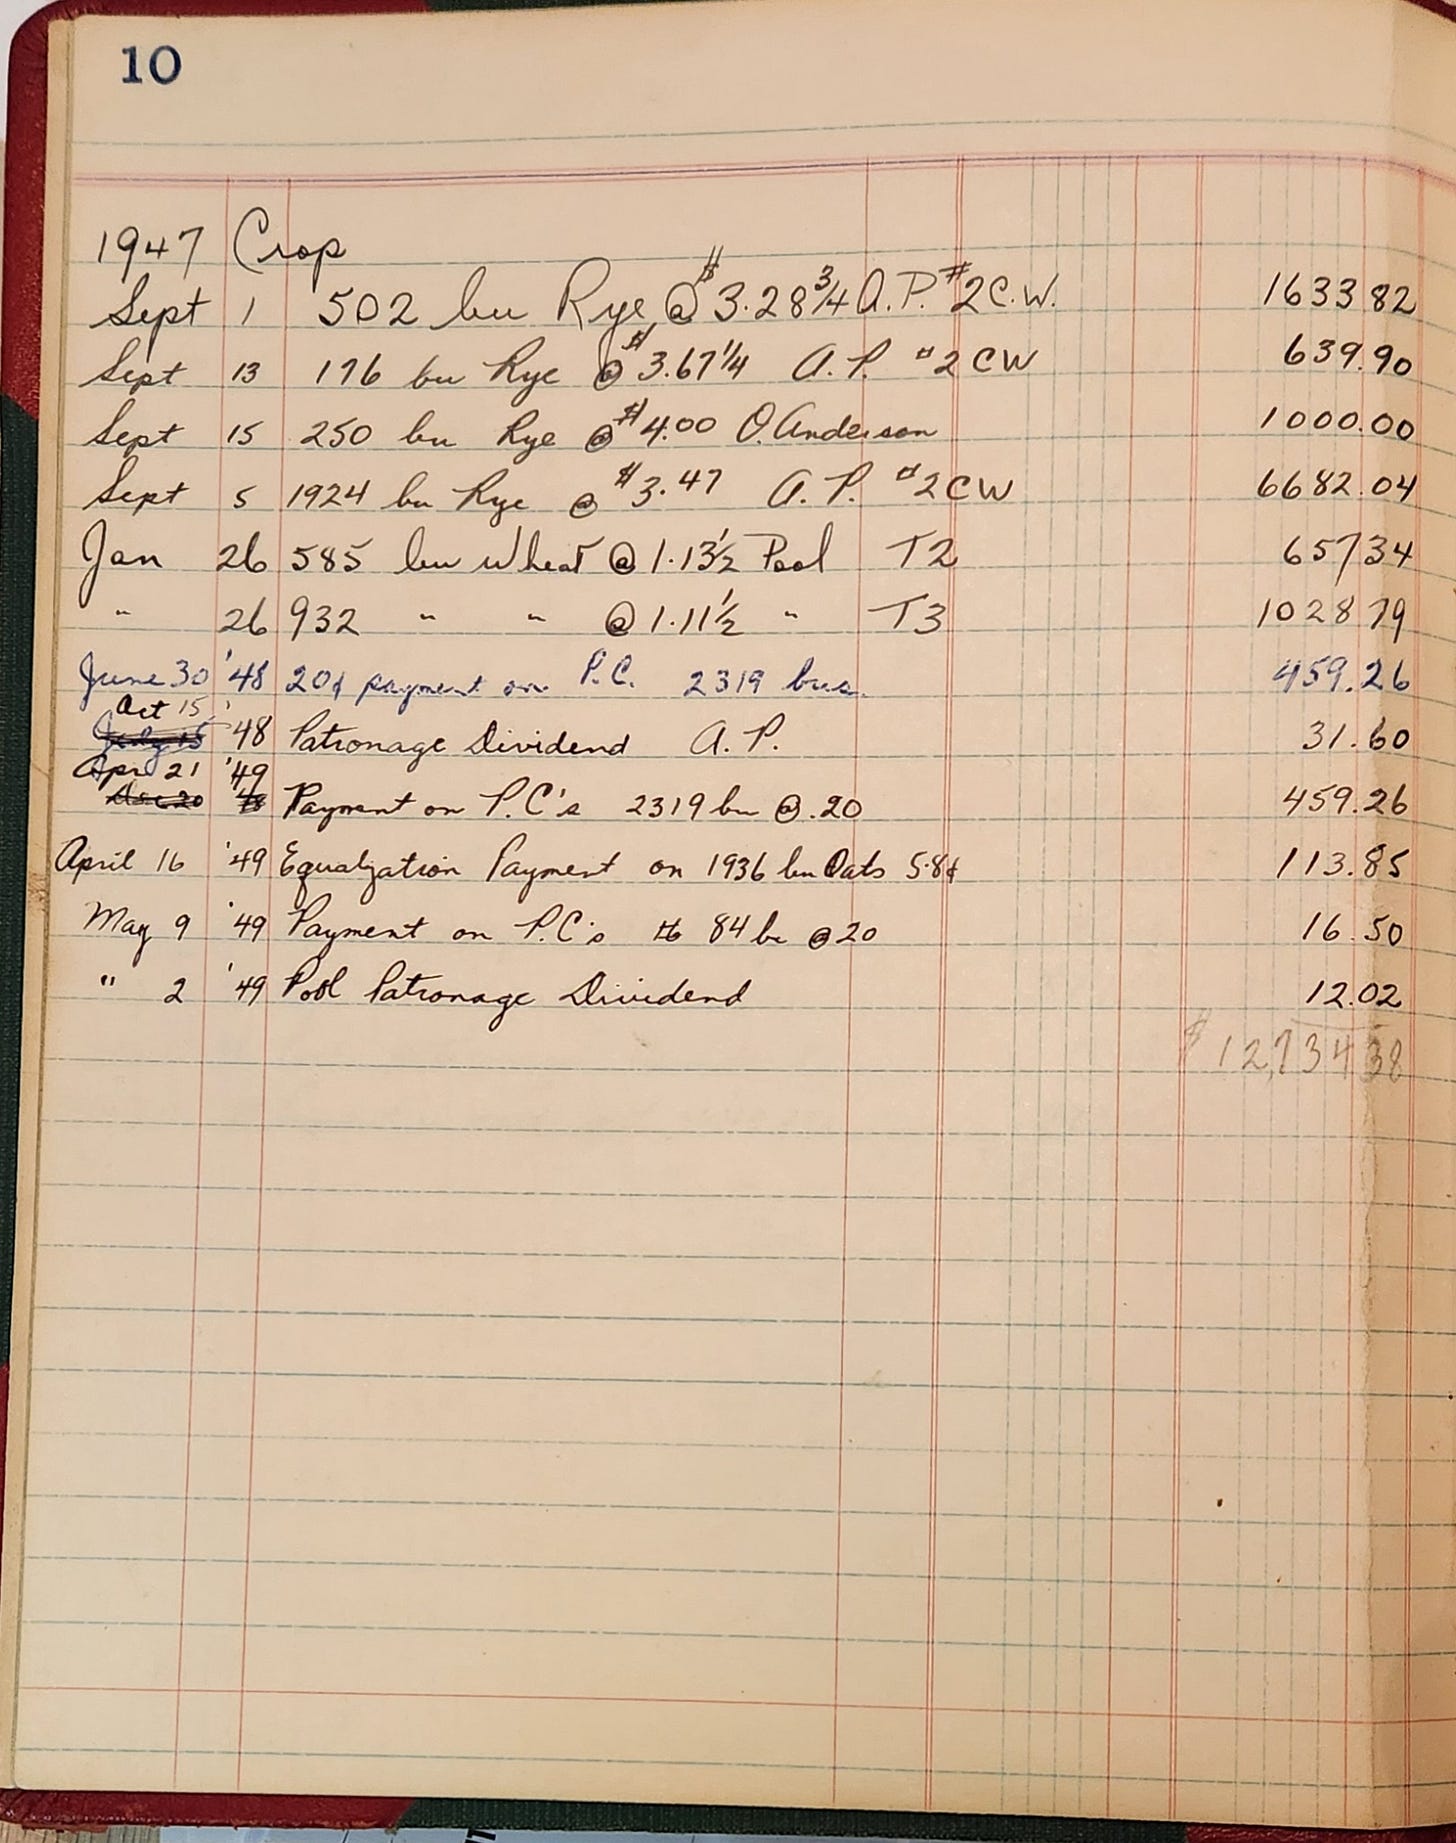 10
1947 Crop
Sept 1 502 bu Rye @ $3.28¾ A.P. #2 C.W. 1633 82
Sept 13 176 bu Rye @ $3.67¼ A.P. #2 CW 639.90
Sept 15 250 bu Rye @ $4.00 O. Anderson 1000.00
Sept 5 1924 bu Rye @ $3.47 A.P. #2 CW 6682.04
Jan 26 585 bu Wheat @ 1.13½ Pool T2 657 34
" 26 932 " " @ 1.11½ " T3 1028 79
June 30 '48 20¢ payment on P.C. 2319 bus. 459.26
Oct 15 '48 Patronage Dividend A.P. 31.60
Apr 21 '49 Payment on P.C's 2319 bu @ .20 459.26
April 16 '49 Equalization Payment on 1936 bu Oats 5.8¢ 113.85
May 9 '49 Payment on P.C's 84 bu @ 20 16.50
" 2 '49 Pool Patronage Dividend 12.02
$12,734 38